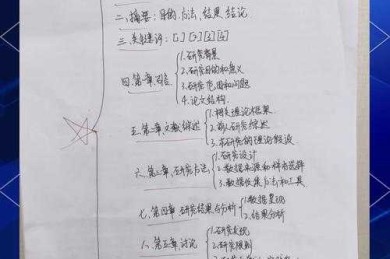 二、摘要：目的、方法、结果、结论
三、关键词：[1] [2] [3] [4]
四、第一章、引言
1.研究背景
2.研究目的和意义
3.研究范围和问题
4.论文结构.
五、第二章、文献综述
1.相关理论框架
2.前人研究综述
3.本研究的理论假设
六、第三章、研究方法
1.研究设计
2.数据来源和样本选择
3.数据收集方法和工具
七、第四章、研究结果与分析
1.数据呈现
2.结果分析
八、第五章、讨论
1.研究发现
2.研究限制